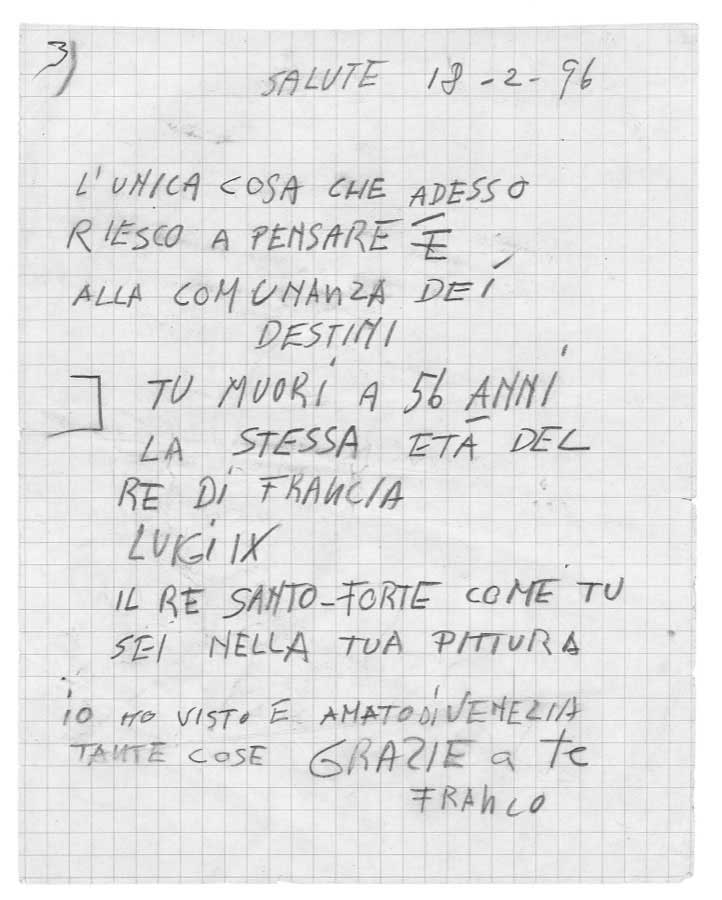 3)
SALUTE 18-2-96
L'UNICA COSA CHE ADESSO
RIESCO A PENSARE È
ALLA COMUNANZA DEI
DESTINI
TU MUORI A 56 ANNI
LA STESSA ETÀ DEL
RE DI FRANCIA
LUIGI IX
IL RE SANTO-FORTE COME TU
SEI NELLA TUA PITTURA
iO HO VISTO E AMATO Di VENEZIA
TANTE COSE GRAZIE a te
FRANCO